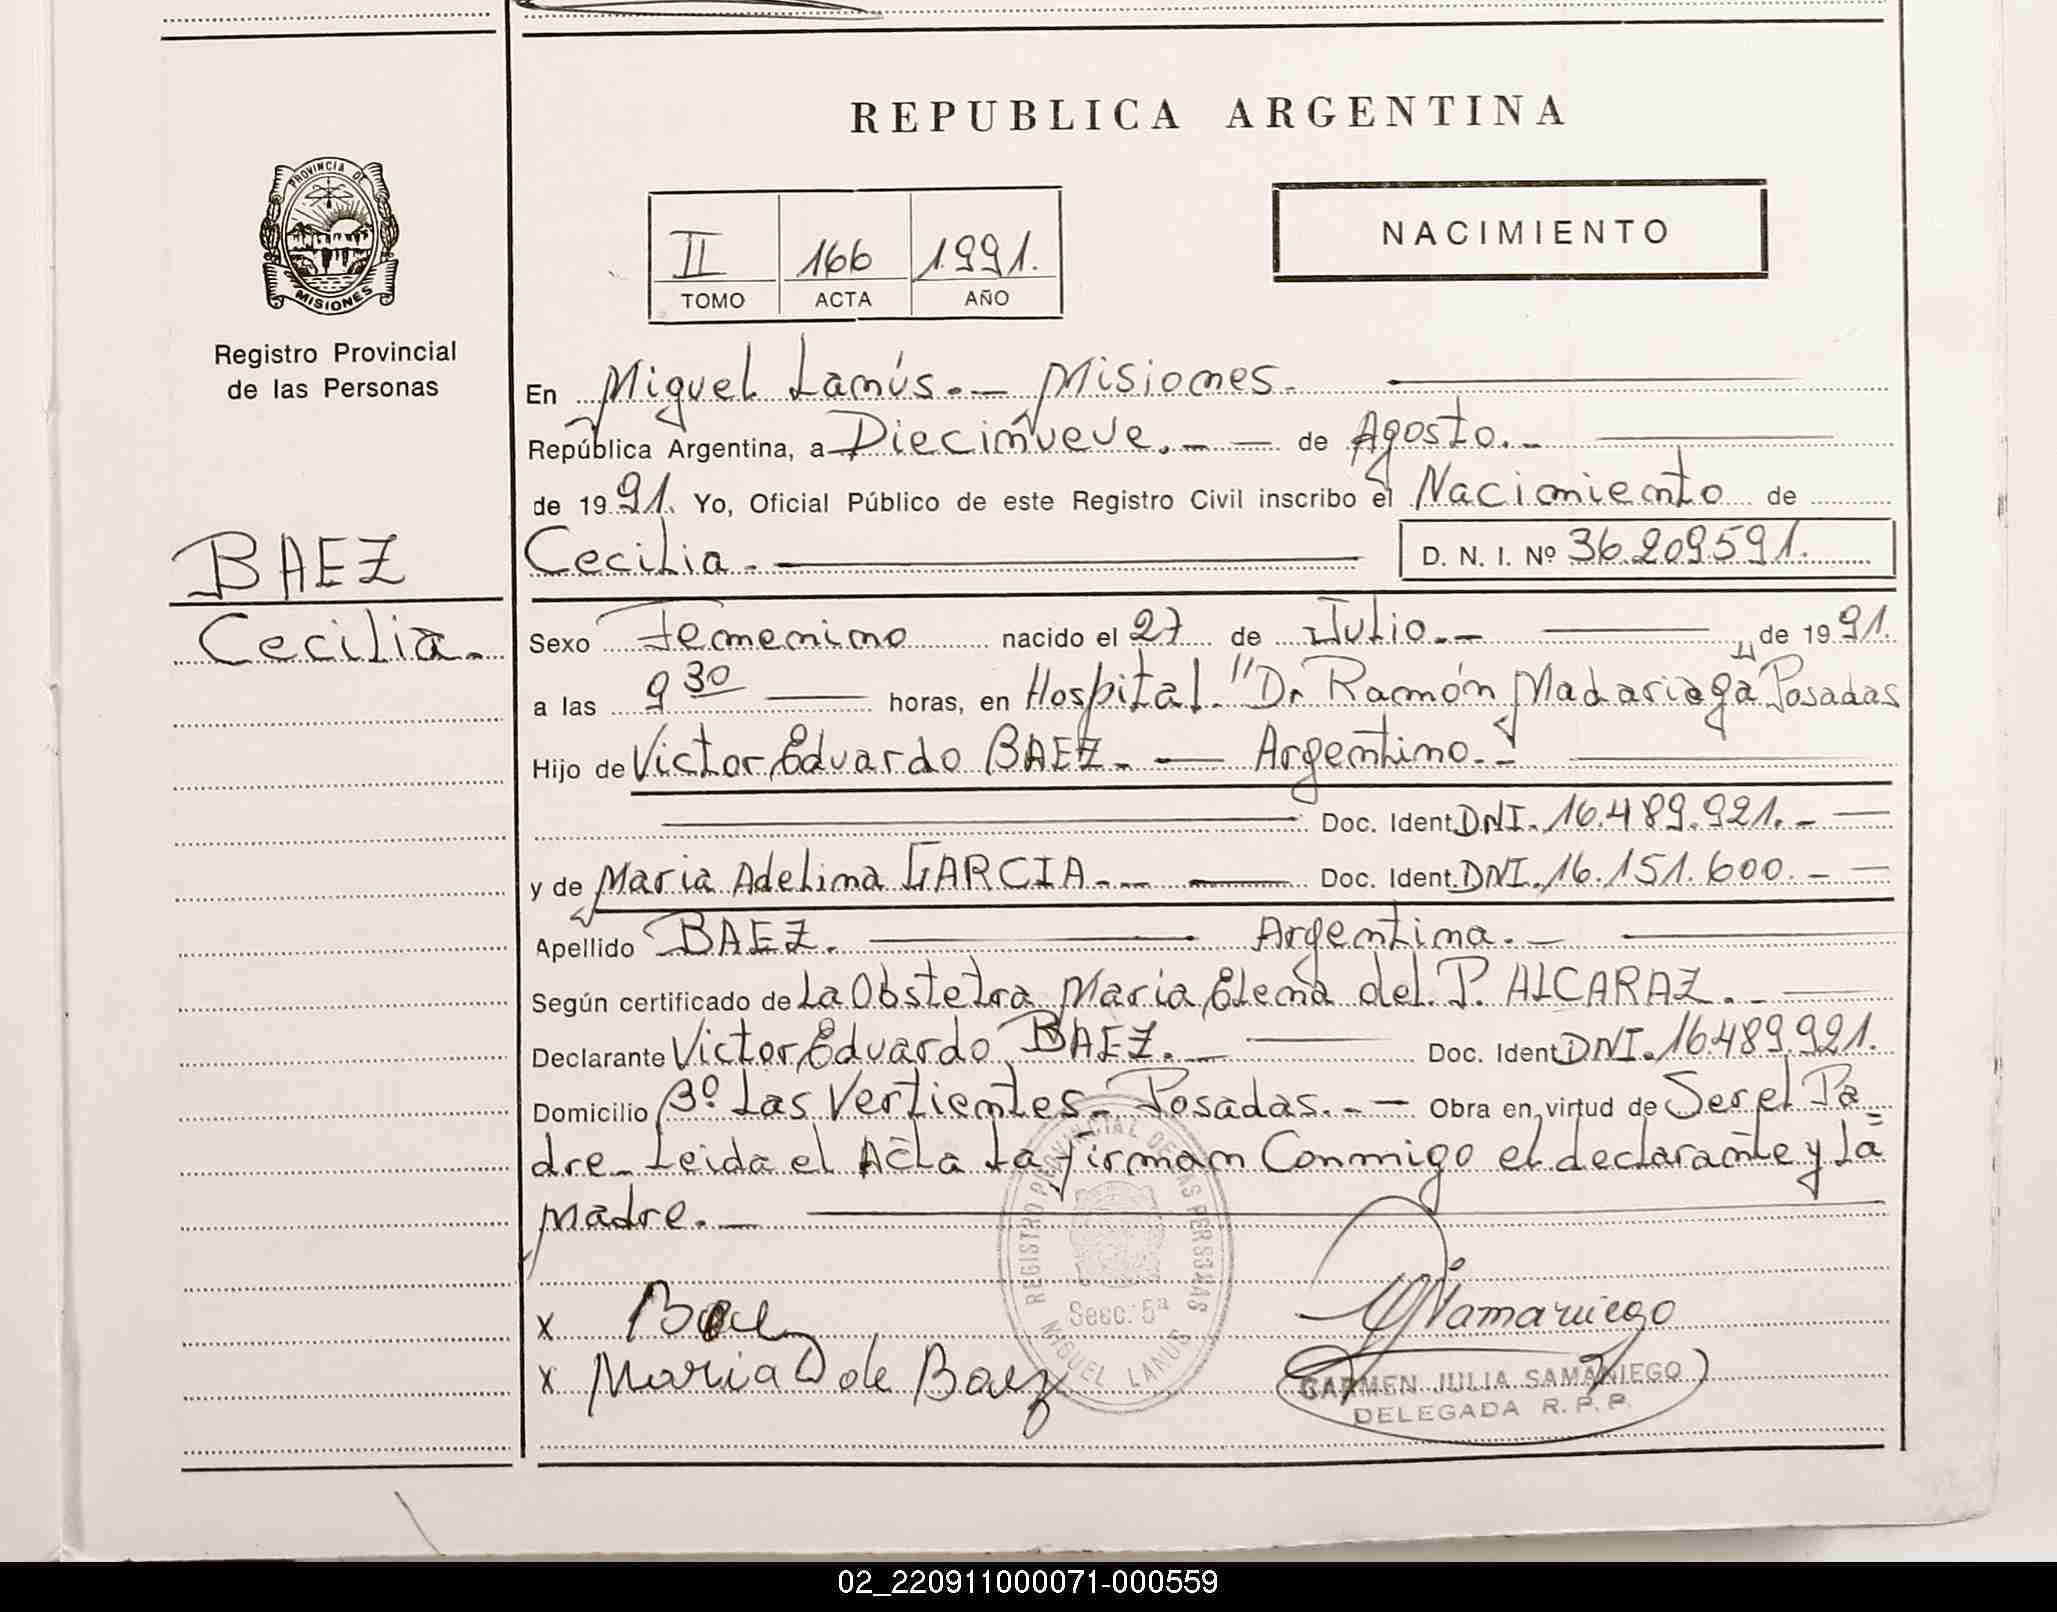 REPUBLICA ARGENTINA
PROVINCIA DE
MISIONES
Registro Provincial
de las Personas
BAEZ
Cecilia.
II 166 1991.
TOMO ACTA AÑO
NACIMIENTO
En Miguel Lanús.- Misiones.
República Argentina, a Diecinueve.- de Agosto.-
de 1991. Yo, Oficial Público de este Registro Civil inscribo el Nacimiento de
Cecilia. D. N. I. Nº 36.209.591.
Sexo Femenino nacido el 27 de Julio.- de 1991.
a las 9 30 horas, en Hospital. "Dr Ramón Madariaga" Posadas
Hijo de Victor Eduardo BAEZ.- Argentino.-
Doc. Ident DNI. 16.489.921.-
y de Maria Adelina GARCIA.- Doc. Ident. DNI. 16.151.600.-
Apellido BAEZ. Argentina.-
Según certificado de La Obstetra Maria Elena del P. ALCARAZ.-
Declarante Victor Eduardo BAEZ.- Doc. Ident DNI. 16.489.921.
Domicilio Bº Las Vertientes- Posadas.- Obra en virtud de Ser el Pa=
dre- Leida el Acta La firman Conmigo el declarante y La
madre.-
x Baez
x Maria de Baez
REGISTRO PROVINCIAL DE LAS PERSONAS
Secc. 5ª
MIGUEL LANUS
CARMEN JULIA SAMANIEGO
DELEGADA R. P. P.
02_220911000071-000559